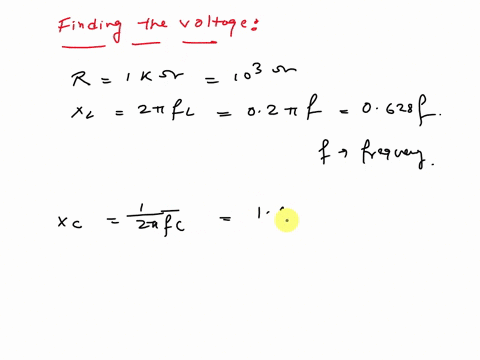 Finding the voltage:
R = 1 K Ω = 10³ Ω
X_L = 2π f L = 0.2 π f = 0.628 f.
f → frequency.
X_C = 1 / 2π f C = 1.